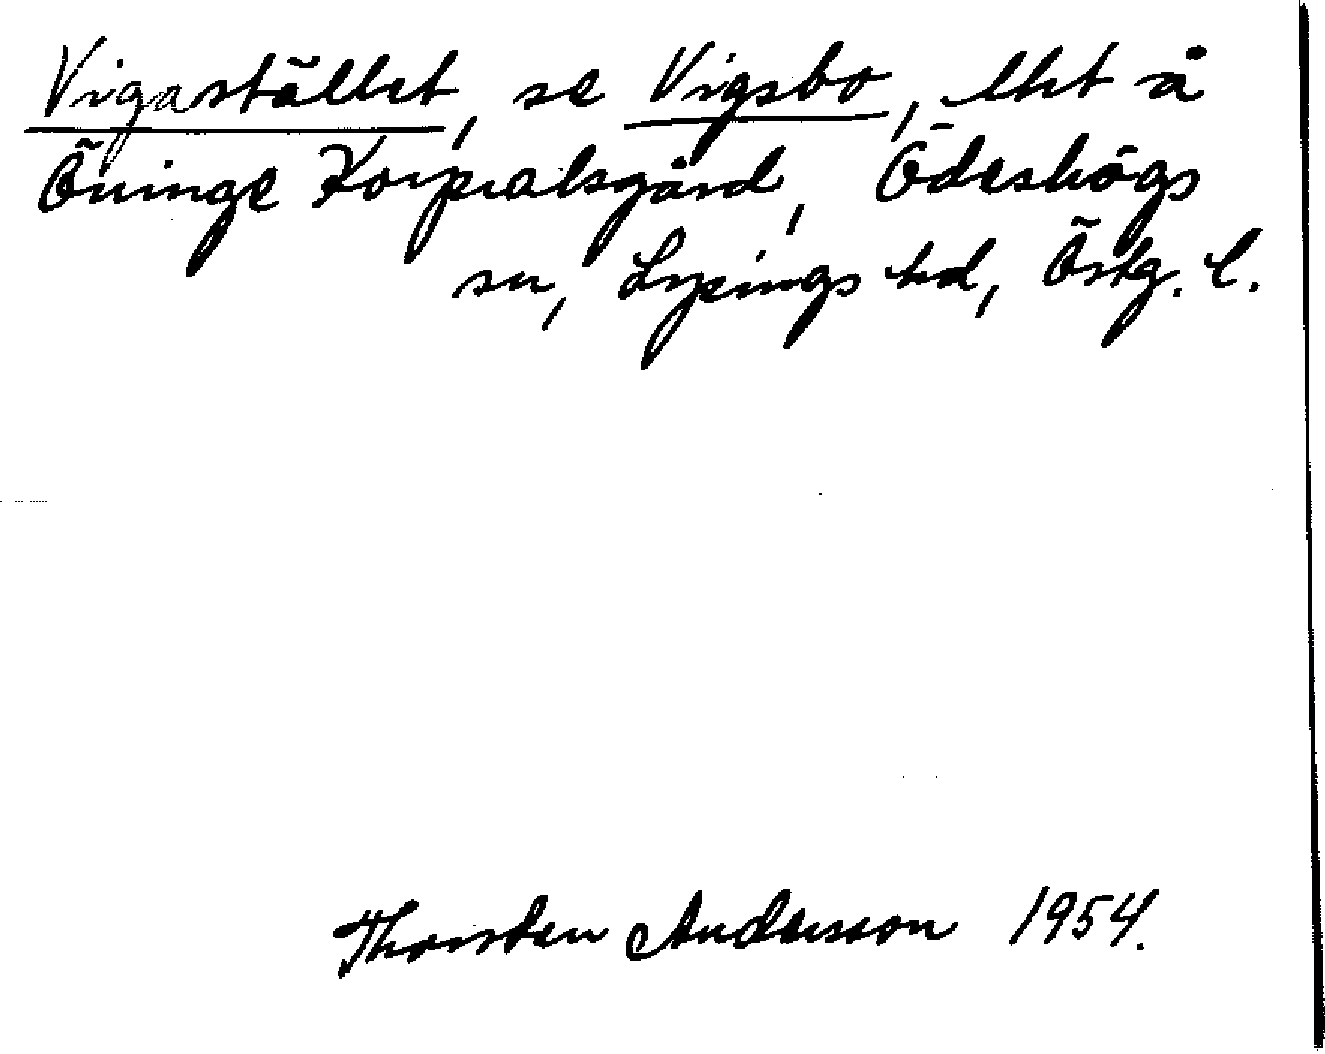 Vigastället, se Vigsbo, lht å
Öninge Korpralsgård, Ödeshögs
sn, Lysings hd, Östg. l.
Thorsten Andersson 1954.